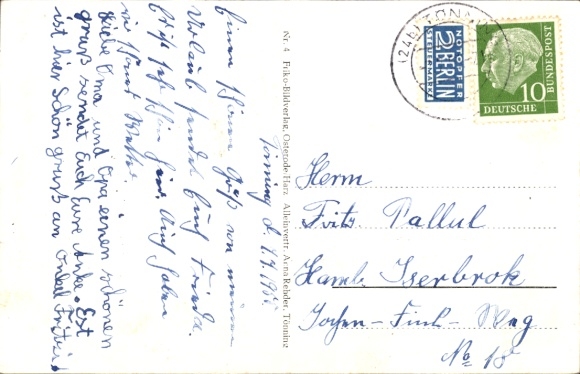 Tönning d. 4.7.1955
Einen schönen Gruß von meinem
Urlaub sendet Euch Frieda.
Es ist sehr schön hier. Auch haben
wir schönes Wetter.
Liebe Oma und Opa einen schönen
gruß sendet Euch Eure Anke. Est
ist hier schön gruß an Onkel Fritzi
Nr. 4 Fuko-Bildverlag, Osterode Harz Alleinvertr. Arno Rehder, Tönning
(24b) TÖNNING
2 NOTOPFER
BERLIN
STEUERMARKE
10
DEUTSCHE
BUNDESPOST
Herrn
Fritz Pallul
Hamb. Iserbrok
Jochen-Fink-Weg
No 18